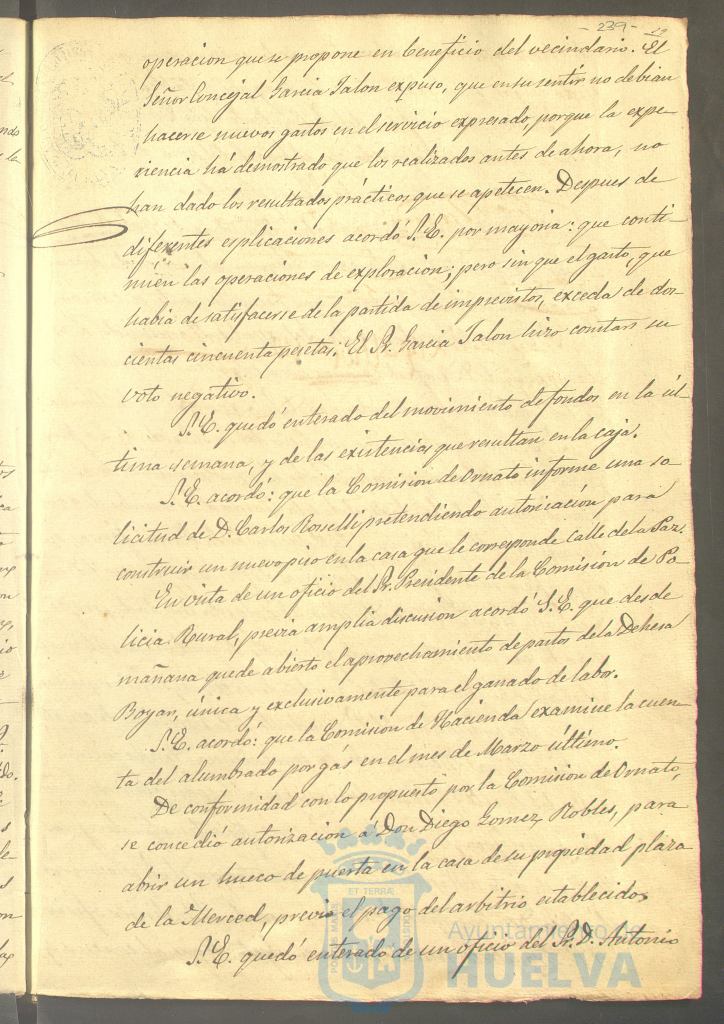 - 239 -
operacion que se propone en beneficio del vecindario. El
Señor Concejal Garcia Jalon expuso, que en su sentir no debian
hacerse nuevos gastos en el servicio expresado, porque la expe-
riencia há demostrado que los realizados antes de ahora, no
han dado los resultados prácticos que se apetecen. Despues de
diferentes esplicaciones acordó S.E. por mayoria: que conti-
núen las operaciones de exploracion; pero sin que el gasto, que
habia de satisfacerse de la partida de imprevistos, exceda de dos-
cientas cincuenta pesetas. El Sr. Garcia Jalon hizo constar su
voto negativo.
S.E. quedó enterado del movimiento de fondos en la úl-
tima semana, y de las existencias que resultan en la caja.
S.E. acordó: que la Comision de Ornato informe una so-
licitud de D. Carlos Rosselli pretendiendo autorizacion para
construir un nuevo piso en la casa que le corresponde calle de la Paz.
En vista de un oficio del Sr. Presidente de la Comision de Po-
licia Rural, previa amplia discusion acordó S.E. que desde
mañana quede abierto el aprovechamiento de pastos de la Dehesa
Boyar, única y exclusivamente para el ganado de labor.
S.E. acordó: que la Comision de Hacienda examine la cuen-
ta del alumbrado por gás en el mes de Marzo último.
De conformidad con lo propuesto por la Comision de Ornato,
se concedió autorizacion á Don Diego Gomez Robles, para
abrir un hueco de puerta en la casa de su propiedad plaza
de la Merced, previo el pago del arbitrio establecido.
S.E. quedó enterado de un oficio del Sr. D. Antonio
Ayuntamiento
HUELVA